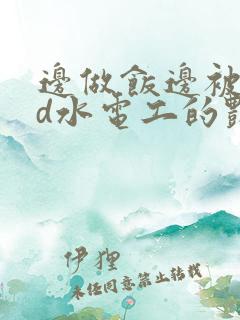 邊做飯邊被
d水電工的
伊狸
未经同意禁止转载